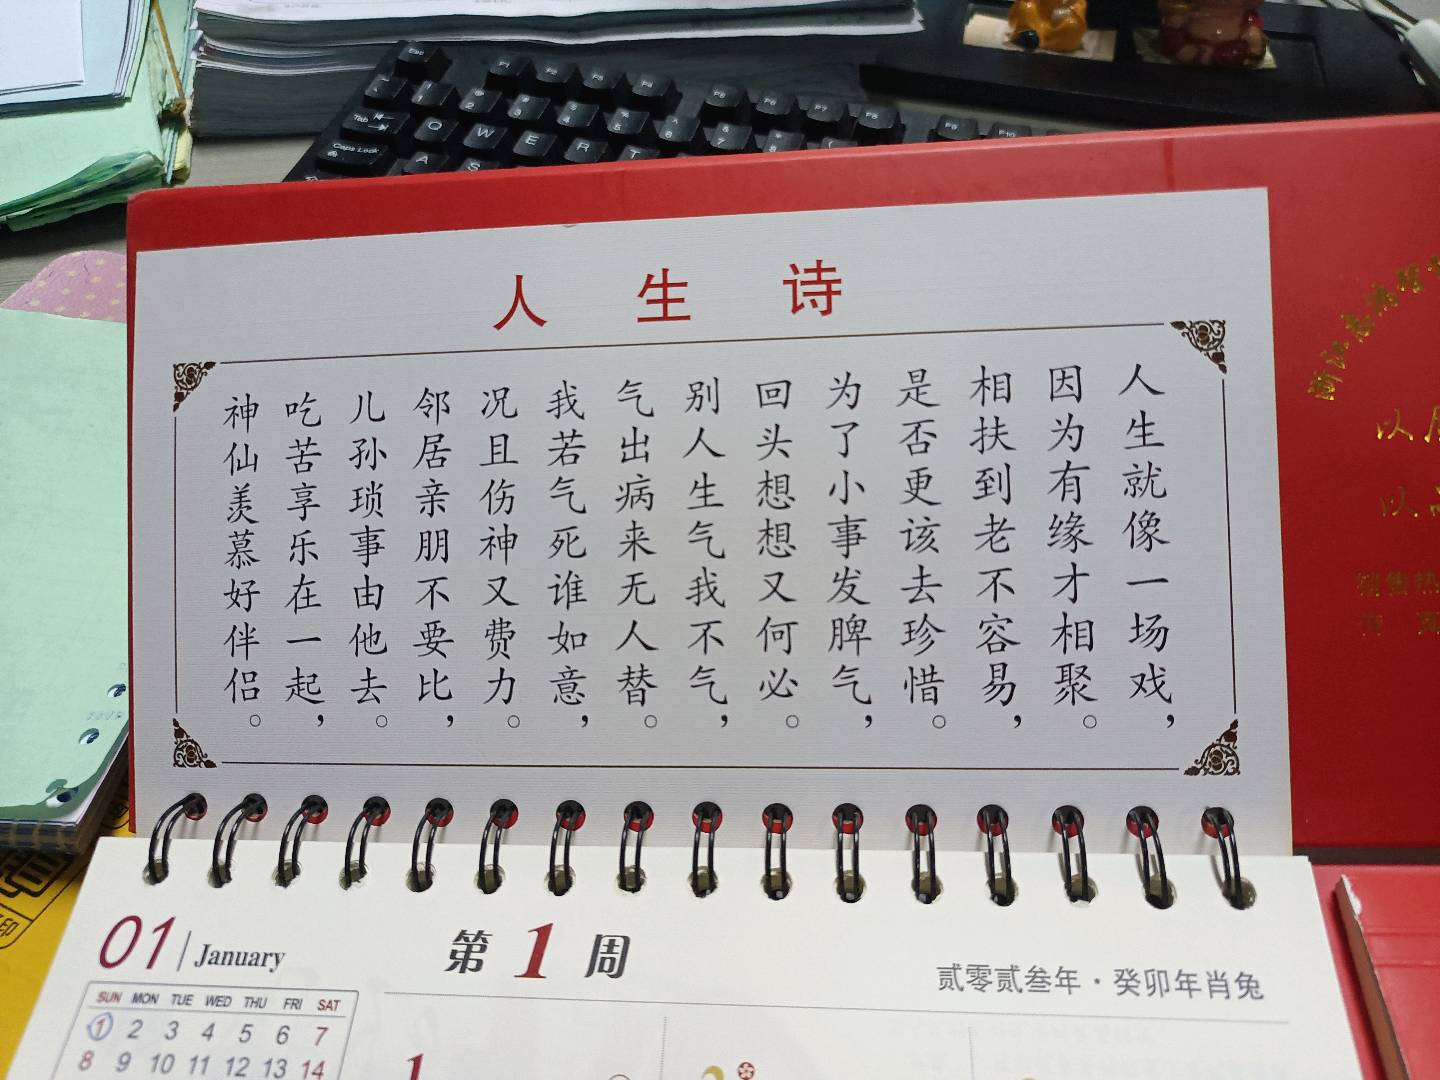 Esc F1 F2 F3 F4 F5 F6 F7 F8 F9 F10
Tab Q W E R T
Caps Lock A S
人生诗
人生就像一场戏，
因为有缘才相聚。
相扶到老不容易，
是否更该去珍惜。
为了小事发脾气，
回头想想又何必。
别人生气我不气，
气出病来无人替。
我若气死谁如意，
况且伤神又费力。
邻居亲朋不要比，
儿孙琐事由他去。
吃苦享乐在一起，
神仙羡慕好伴侣。
01 January
第1周
贰零贰叁年·癸卯年肖兔
SUN MON TUE WED THU FRI SAT
1 2 3 4 5 6 7
8 9 10 11 12 13 14
1 2
浙江
以
以
销售热
传
印